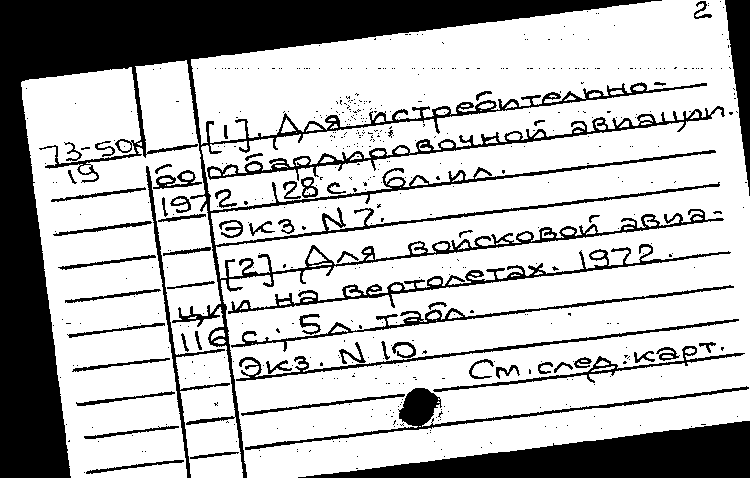 2
[1]. Для истребительно-
73-50к бомбардировочной авиации.
19 1972. 128 с.; 6 л. ил.
Экз. N 7.
[2]. Для войсковой авиа-
ции на вертолетах. 1972.
116 с.; 5 л. табл.
Экз. N 10.
См. след. карт.